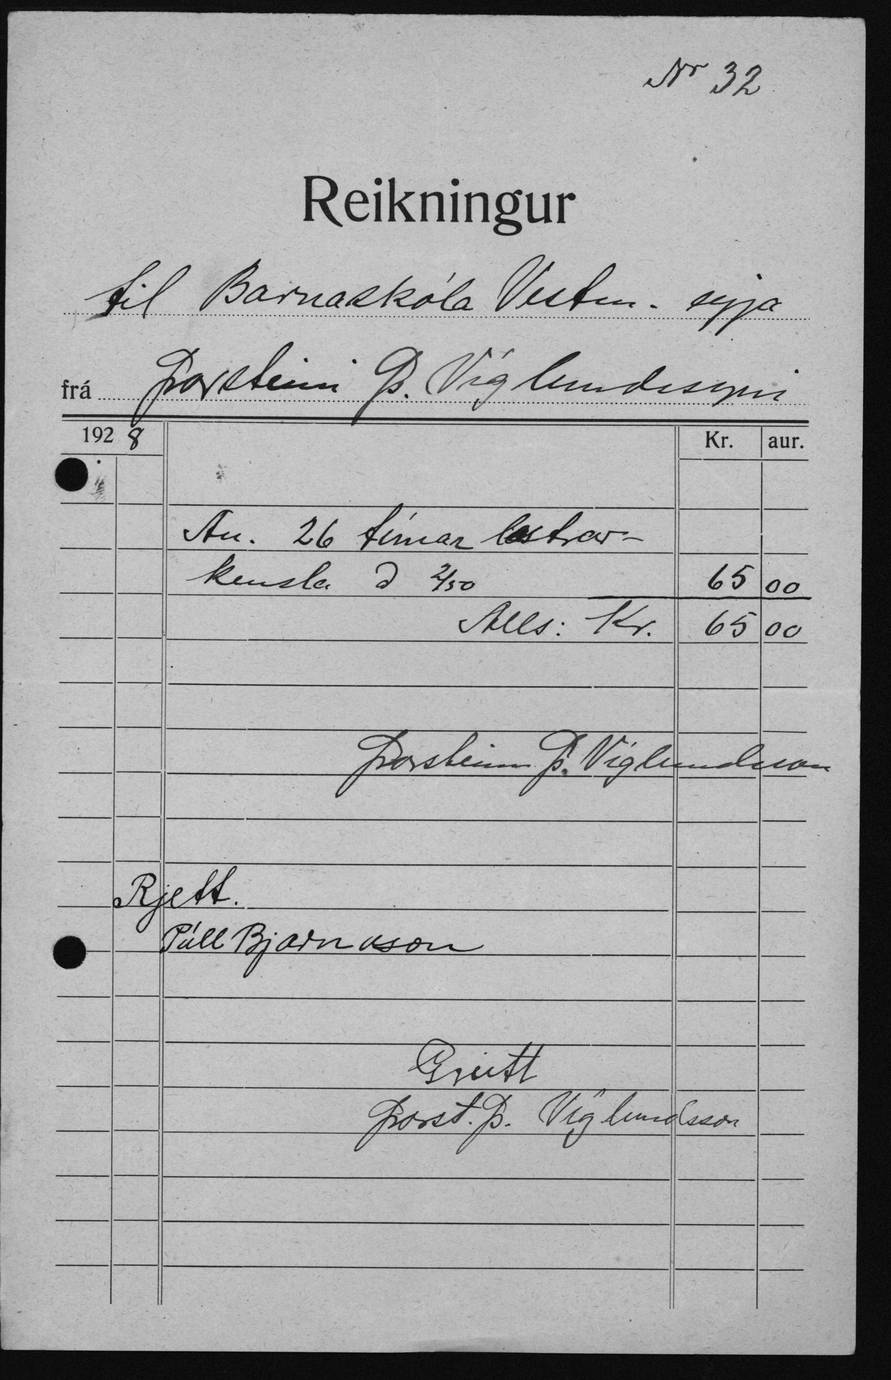 Nr 32
Reikningur
til Barnaskóla Vestm. eyja
frá Þorsteini Þ. Víglundssyni
1928 Kr. aur.
An. 26 tímar lestrar-
kensla á 2/50 65 00
Alls: Kr. 65 00
Þorsteinn Þ. Víglundsson
Rjett.
Páll Bjarnason
Greitt
Þorst. Þ. Víglundsson